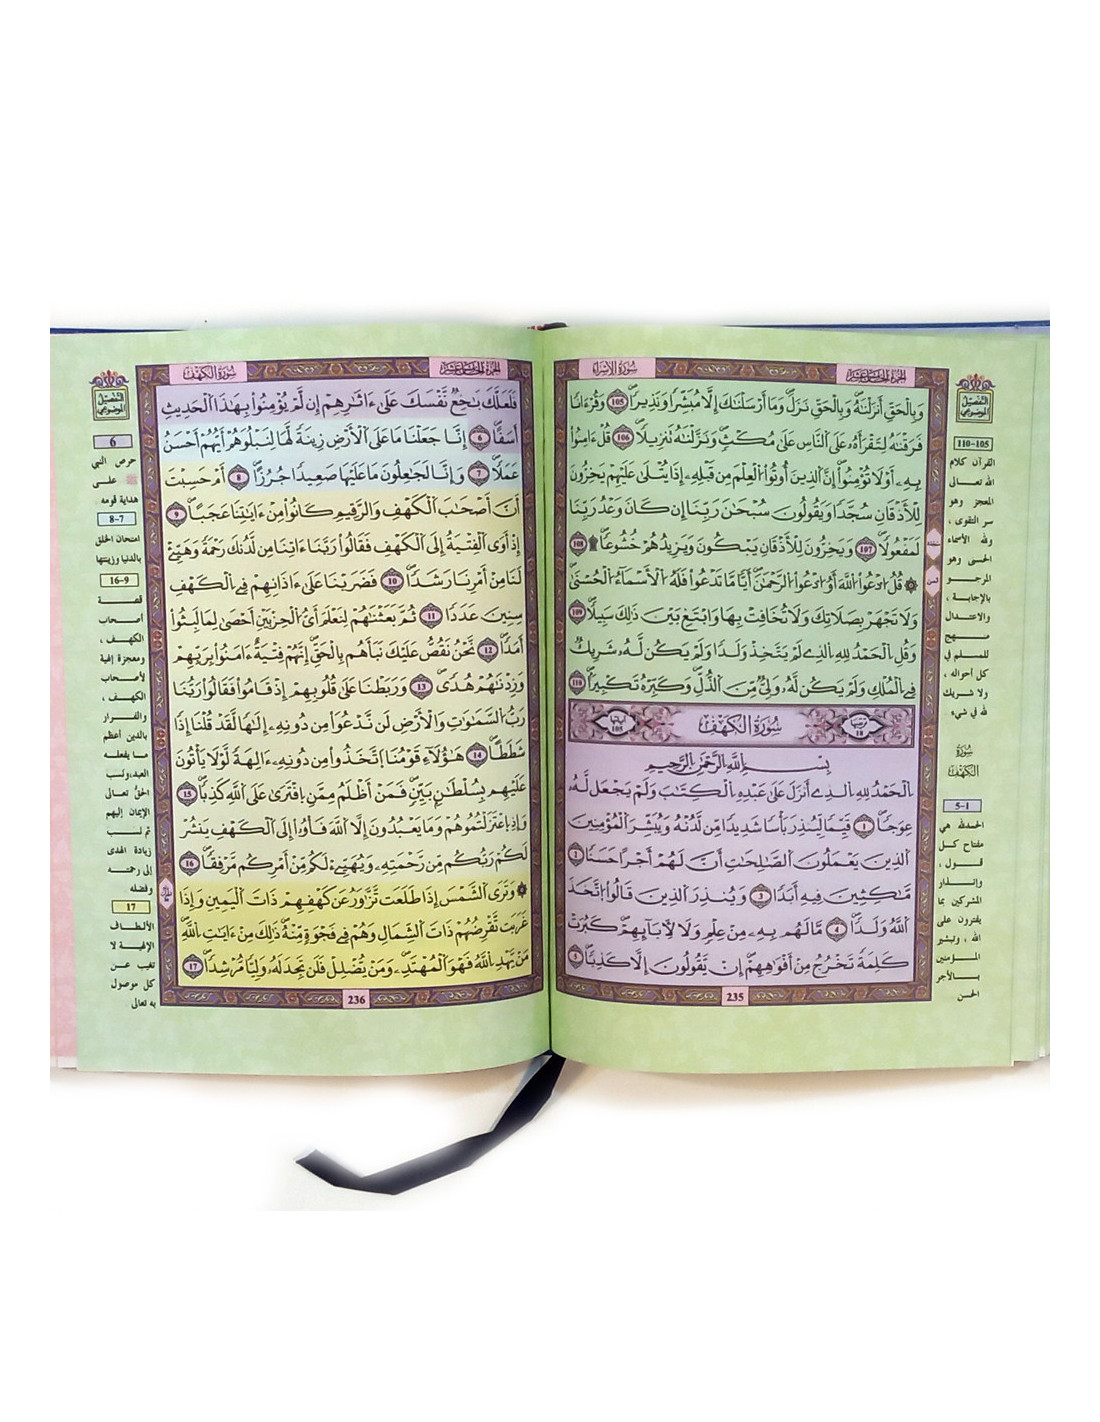 سُورَةُ الإِسْرَاءِ
الجُزْءُ الخَامِسَ عَشَرَ
وَبِالْحَقِّ أَنزَلْنَٰهُ وَبِالْحَقِّ نَزَلَۖ وَمَا أَرْسَلْنَٰكَ إِلَّا مُبَشِّرٗا وَنَذِيرٗاۖ 105 وَقُرْءَانٗا
فَرَقْنَٰهُ لِتَقْرَأَهُۥ عَلَى النَّاسِ عَلَىٰ مُكْثٖ وَنَزَّلْنَٰهُ تَنزِيلٗاۖ 106 قُلْ ءَامِنُواْ
بِهِۦ أَوْ لَا تُؤْمِنُواْۖ إِنَّ الذِينَ أُوتُواْ الْعِلْمَ مِن قَبْلِهِۦ إِذَا يُتْلَىٰ عَلَيْهِمْ يَخِرُّونَ
لِلْأَذْقَانِ سُجَّدٗا وَيَقُولُونَ سُبْحَٰنَ رَبِّنَا إِن كَانَ وَعْدُ رَبِّنَا
لَمَفْعُولٗاۖ 107 وَيَخِرُّونَ لِلْأَذْقَانِ يَبْكُونَ وَيَزِيدُهُمْ خُشُوعٗا۩ۖ 108
۞ قُلُ ادْعُواْ اللَّهَ أَوُ ادْعُواْ الرَّحْمَٰنَۖ أَيّٗا مَّا تَدْعُواْ فَلَهُ الْأَسْمَاءُ الْحُسْنَىٰۖ
وَلَا تَجْهَرْ بِصَلَاتِكَ وَلَا تُخَافِتْ بِهَا وَابْتَغِ بَيْنَ ذَٰلِكَ سَبِيلٗاۖ 109
وَقُلِ الْحَمْدُ لِلهِ الذِے لَمْ يَتَّخِذْ وَلَدٗا وَلَمْ يَكُن لَّهُۥ شَرِيكٞ
فِے الْمُلْكِ وَلَمْ يَكُن لَّهُۥ وَلِيّٞ مِّنَ الذُّلِّۖ وَكَبِّرْهُ تَكْبِيراٗۖ 110
ترتيبها 18
سُورَةُ الْكَهْفِ
آياتها 105
بِسْمِ اللَّهِ الرَّحْمَٰنِ الرَّحِيمِ
الْحَمْدُ لِلهِ الذِے أَنزَلَ عَلَىٰ عَبْدِهِ الْكِتَٰبَ وَلَمْ يَجْعَل لَّهُۥ
عِوَجٗاۖ 1 قَيِّمٗا لِّيُنذِرَ بَأْسٗا شَدِيدٗا مِّن لَّدُنْهُ وَيُبَشِّرَ الْمُؤْمِنِينَ
الذِينَ يَعْمَلُونَ الصَّٰلِحَٰتِ أَنَّ لَهُمْ أَجْراً حَسَنٗا 2
مَّٰكِثِينَ فِيهِ أَبَدٗاۖ 3 وَيُنذِرَ الذِينَ قَالُواْ اتَّخَذَ
اللَّهُ وَلَدٗاۖ 4 مَّا لَهُم بِهِۦ مِنْ عِلْمٖ وَلَا لِأٓبَائِهِمْۖ كَبُرَتْ
كَلِمَةٗ تَخْرُجُ مِنْ أَفْوَٰهِهِمْۖ إِنْ يَّقُولُونَ إِلَّا كَذِبٗاۖ 5
235
التفصيل
الموضوعي
110-105
القرآن كلام
الله تعالى
المعجز وهو
سر التقوى ،
ولله الأسماء
الحسنى وهو
المرجو
بالإجابة ،
والاعتدال
منهج
للمسلم في
كل أحواله ،
ولا شريك
لله في شيء
سُورَةُ
الكَهْفِ
5-1
الحمدلله هي
مفتاح كل
قول ،
وإنذار
المشركين بما
يفترون على
الله ، وتبشير
المؤمنين
بالأجر
الحسن
سُورَةُ الكَهْفِ
الجُزْءُ الخَامِسَ عَشَرَ
فَلَعَلَّكَ بَٰخِعٞ نَّفْسَكَ عَلَىٰ ءَاثَٰرِهِمْ إِن لَّمْ يُؤْمِنُواْ بِهَٰذَا الْحَدِيثِ
أَسَفًاۖ 6 إِنَّا جَعَلْنَا مَا عَلَى الْأَرْضِ زِينَةٗ لَّهَا لِنَبْلُوَهُمْ أَيُّهُمْ أَحْسَنُ
عَمَلٗاۖ 7 وَإِنَّا لَجَٰعِلُونَ مَا عَلَيْهَا صَعِيدٗا جُرُزًاۖ 8 أَمْ حَسِبْتَ
أَنَّ أَصْحَٰبَ الْكَهْفِ وَالرَّقِيمِ كَانُواْ مِنْ ءَايَٰتِنَا عَجَبًاۖ 9
إِذْ أَوَى الْفِتْيَةُ إِلَى الْكَهْفِ فَقَالُواْ رَبَّنَا ءَاتِنَا مِن لَّدُنكَ رَحْمَةٗ وَهَيِّئْ
لَنَا مِنْ أَمْرِنَا رَشَدٗاۖ 10 فَضَرَبْنَا عَلَىٰ ءَاذَانِهِمْ فِے الْكَهْفِ
سِنِينَ عَدَدٗاۖ 11 ثُمَّ بَعَثْنَٰهُمْ لِنَعْلَمَ أَيُّ الْحِزْبَيْنِ أَحْصَىٰ لِمَا لَبِثُواْ
أَمَدٗاۖ 12 نَّحْنُ نَقُصُّ عَلَيْكَ نَبَأَهُم بِالْحَقِّۖ إِنَّهُمْ فِتْيَةٌ ءَامَنُواْ بِرَبِّهِمْ
وَزِدْنَٰهُمْ هُدٗىۖ 13 وَرَبَطْنَا عَلَىٰ قُلُوبِهِمْ إِذْ قَامُواْ فَقَالُواْ رَبُّنَا
رَبُّ السَّمَٰوَٰتِ وَالْأَرْضِ لَن نَّدْعُوَاْ مِن دُونِهِۦ إِلَٰهٗا لَّقَدْ قُلْنَا إِذٗا
شَطَطًاۖ 14 هَٰؤُلَاءِ قَوْمُنَا اتَّخَذُواْ مِن دُونِهِۦ ءَالِهَةٗ لَّوْلَا يَأْتُونَ
عَلَيْهِم بِسُلْطَٰنِۢ بَيِّنٖۖ فَمَنْ أَظْلَمُ مِمَّنِ افْتَرَىٰ عَلَى اللَّهِ كَذِبٗاۖ 15
وَإِذِ اعْتَزَلْتُمُوهُمْ وَمَا يَعْبُدُونَ إِلَّا اللَّهَ فَأْوُۥاْ إِلَى الْكَهْفِ يَنشُرْ
لَكُمْ رَبُّكُم مِّن رَّحْمَتِهِۦ وَيُهَيِّئْ لَكُم مِّنْ أَمْرِكُم مَّرْفِقٗاۖ 16
۞ وَتَرَى الشَّمْسَ إِذَا طَلَعَت تَّزَّٰوَرُ عَن كَهْفِهِمْ ذَاتَ الْيَمِينِ وَإِذَا
غَرَبَت تَّقْرِضُهُمْ ذَاتَ الشِّمَالِ وَهُمْ فِي فَجْوَةٖ مِّنْهُۖ ذَٰلِكَ مِنْ ءَايَٰتِ اللَّهِۖ
مَنْ يَّهْدِ اللَّهُ فَهُوَ الْمُهْتَدِۦۖ وَمَنْ يُّضْلِلْ فَلَن تَجِدَ لَهُۥ وَلِيّٗا مُّرْشِدٗاۖ 17
236
التفصيل
الموضوعي
6
حرص النبي
ﷺ على
هداية قومه
8-7
امتحان الخلق
بالدنيا وزينتها
16-9
قصة
أصحاب
الكهف ،
ومعجزة إلهية
لأصحاب
الكهف ،
والفرار
بالدين أعظم
ما يفعله
العبد، ونسب
الحق تعالى
الإيمان إليهم
ثم نسب
زيادة الهدى
إلى رحمته
وفضله
17
الألطاف
الإلهية لا
تغيب عن
كل موصول
به تعالى